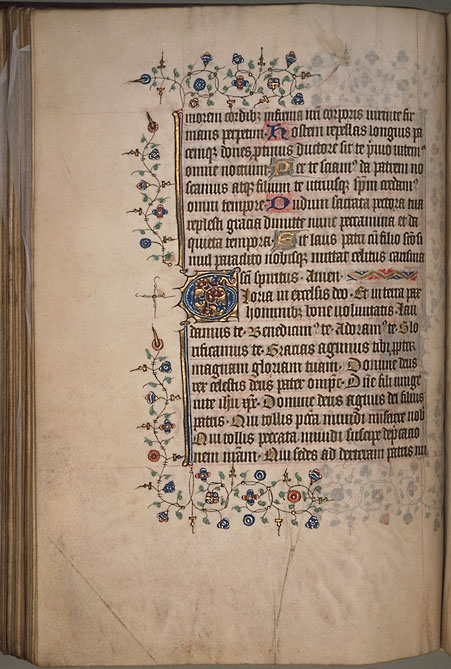 morem cordibz infirma nri corporis virtute fir
mans perpetim. Hostem repellas longius pa
cemqz dones ptinus ductore sic te pvio vitem⁹
omne noxium. Per te sciam⁹ da patrem no
scamus atqz filium te utriusqz spm credam⁹
omni tempore. Dudum sacrata pectora tua
replesti gracia dimitte nunc peccamina et da
quieta tempora. Sit laus patri cu filio sco si
mul paraclito nobisqz mittat celitus carisma
sci spiritus. Amen.
Gloria in excelsis deo. Et in terra pax
hominibz bone voluntatis. Lau
damus te. Benedicim⁹ te. Adoram⁹ te. Glo
rificamus te. Gracias agimus tibi ppter
magnam gloriam tuam. Domine deus
rex celestis deus pater omps. Dne fili unige
nite ihu xpe. Domine deus agnus dei filius
patris. Qui tollis pcca mundi miserere nob
Qui tollis peccata mundi suscipe depcatio
nem nram. Qui sedes ad dexteram patris mi